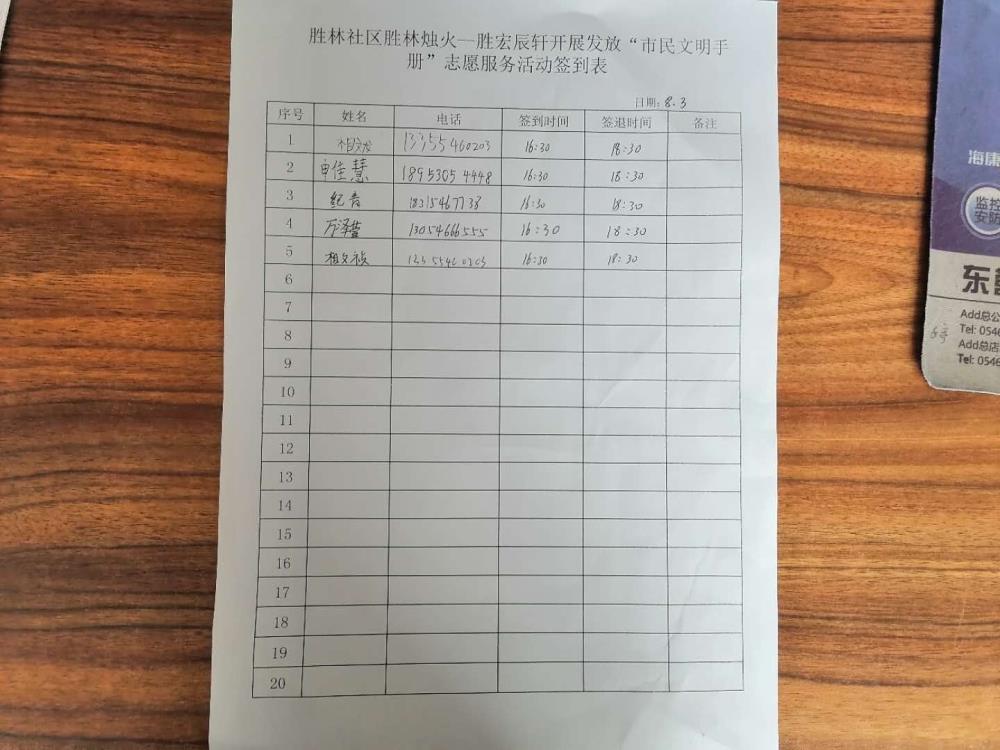 胜林社区胜林烛火—胜宏辰轩开展发放“市民文明手
册”志愿服务活动签到表
日期：8.3
序号 姓名 电话 签到时间 签退时间 备注
1 13355460203 16:30 18:30
2 申佳慧 18953054448 16:30 18:30
3 纪音 18315467738 16:30 18:30
4 万泽萱 13054666555 16:30 18:30
5 16:30 18:30
6
7
8
9
10
11
12
13
14
15
16
17
18
19
20
海康
监控
安防
东营
Add总公
Tel: 0546
Add总店
Tel: 0546